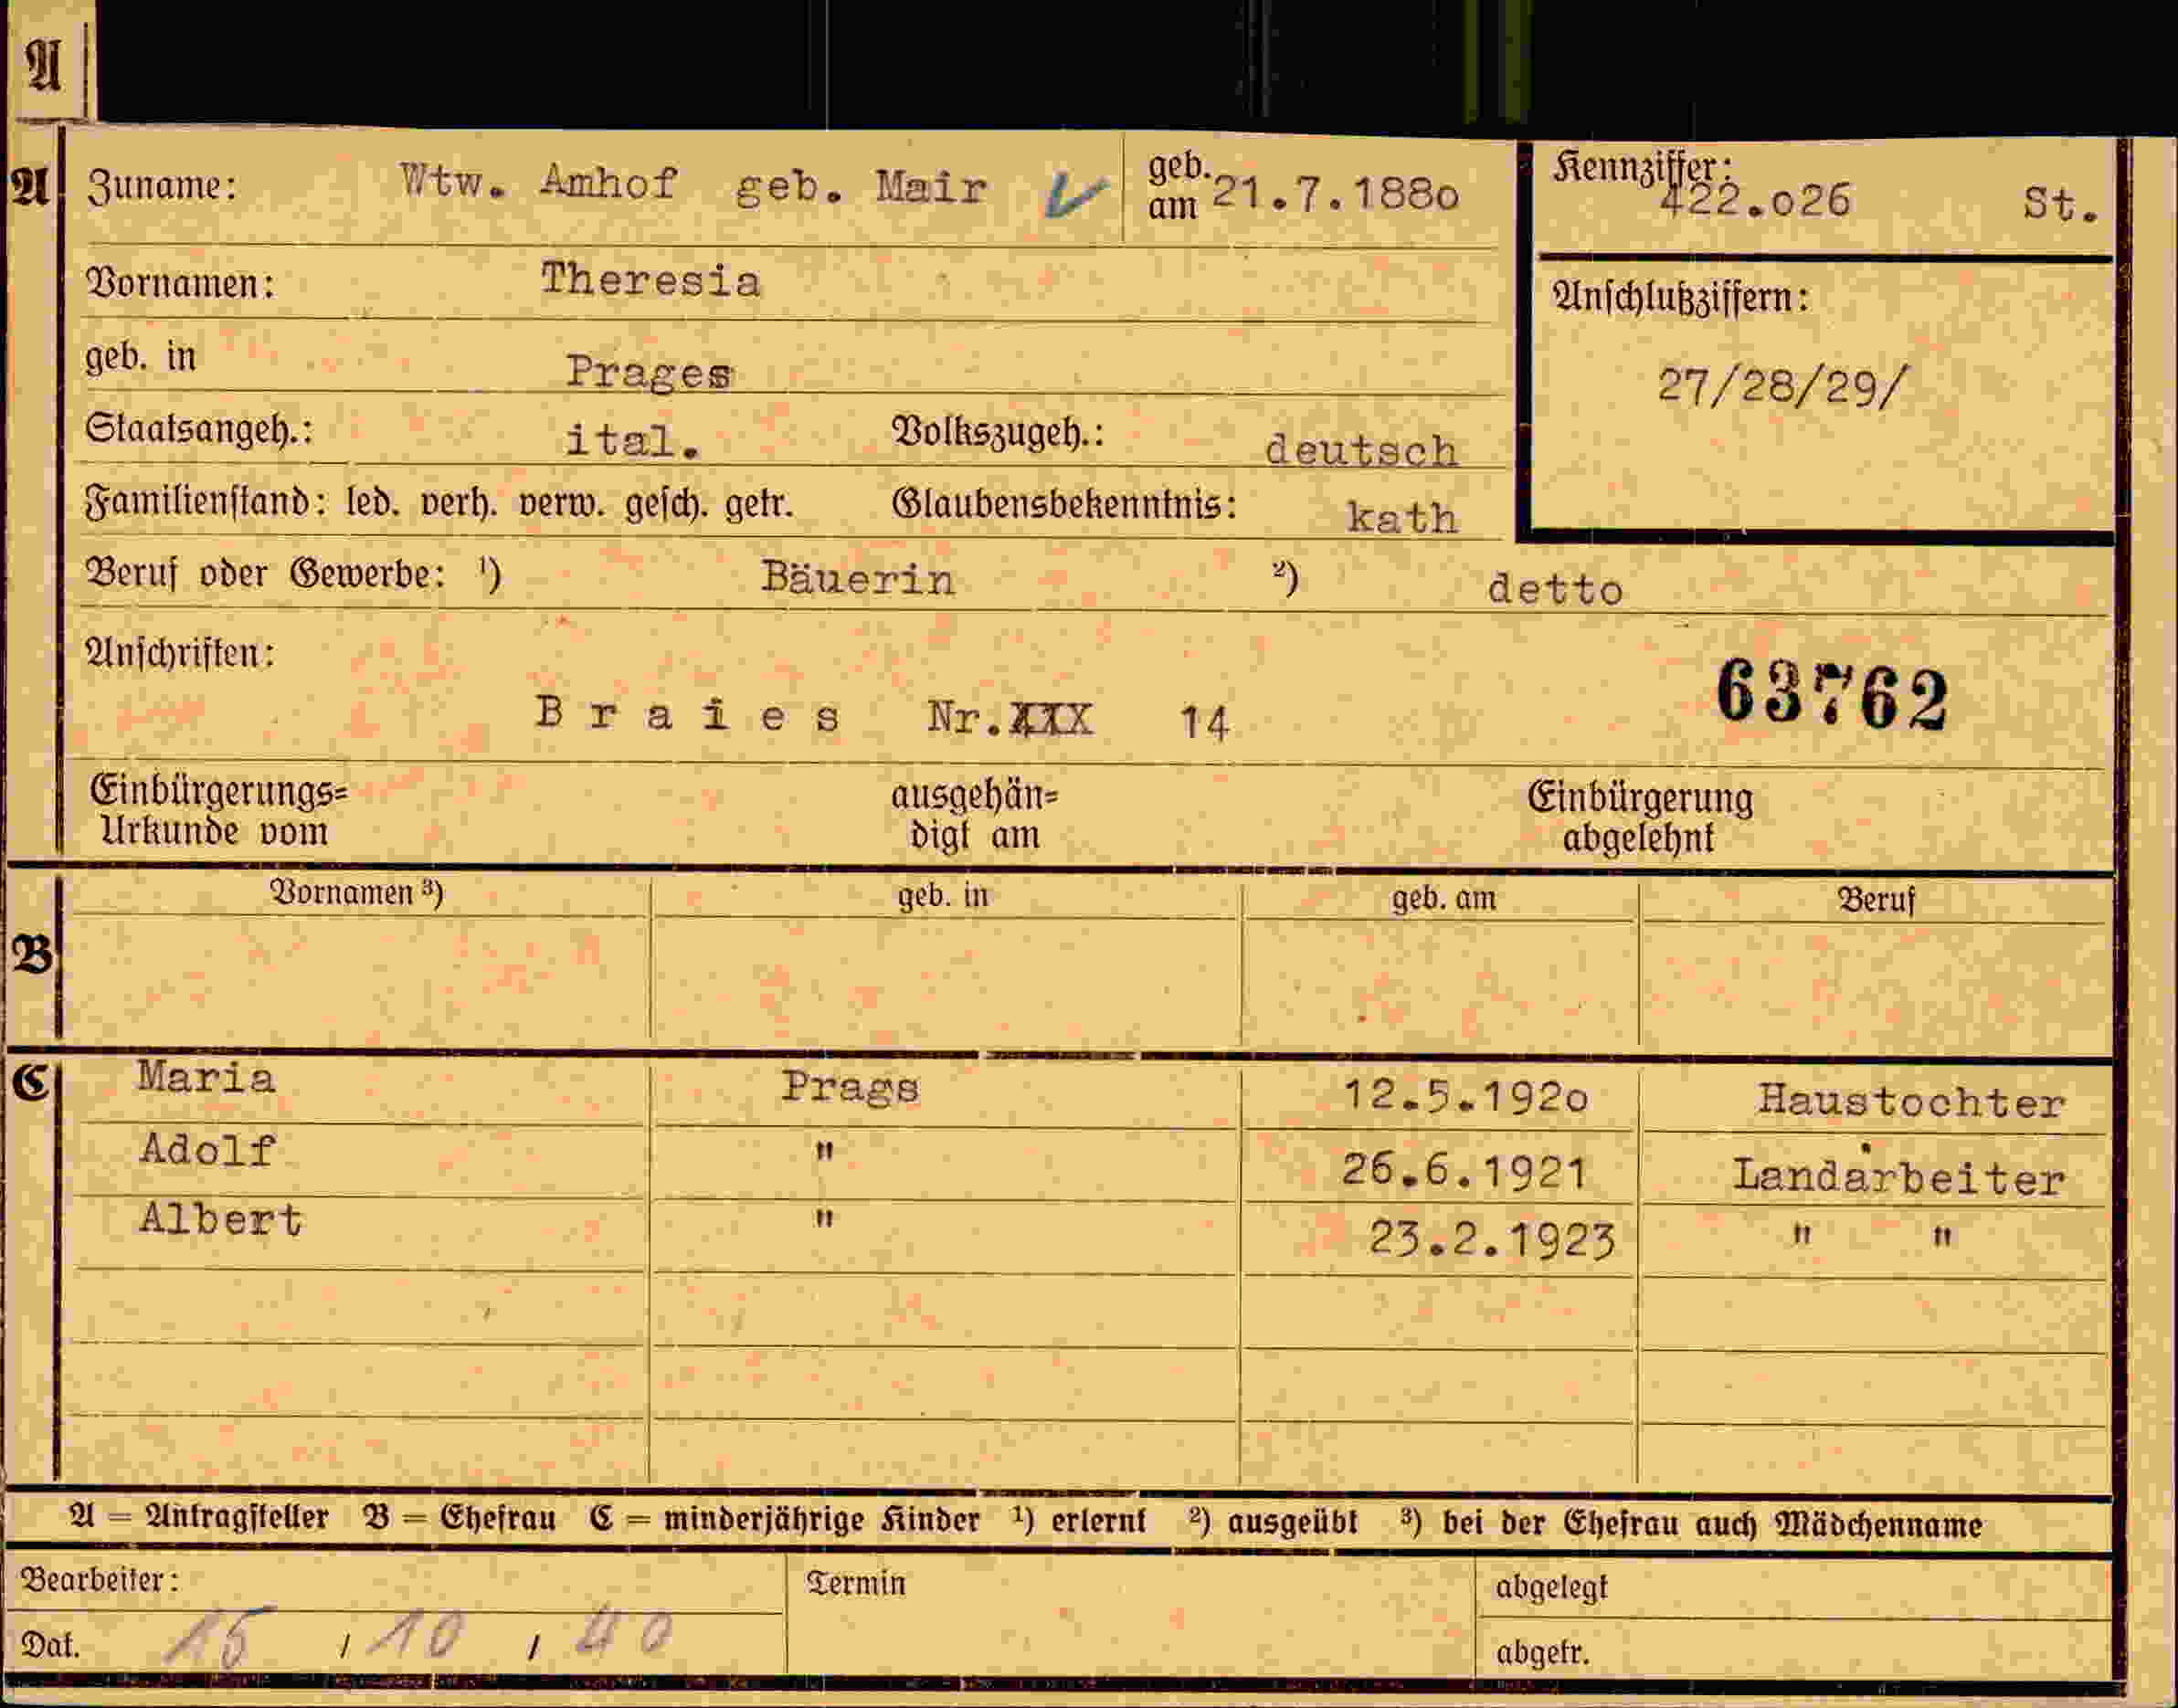 A
A Zuname: Wtw. Amhof geb. Mair geb. am 21.7.188o Kennziffer: 422.o26 St.
Vornamen: Theresia
Anschlußziffern:
geb. in Prages
27/28/29/
Staatsangeh.: ital. Volkszugeh.: deutsch
Familienstand: led. verh. verw. gesch. getr. Glaubensbekenntnis: kath
Beruf oder Gewerbe: ¹) Bäuerin ²) detto
Anschriften:
63762
B r a i e s Nr.XXX 14
Einbürgerungs= ausgehän= Einbürgerung
Urkunde vom digt am abgelehnt
Vornamen ³) geb. in geb. am Beruf
B
C Maria Prags 12.5.192o Haustochter
Adolf " 26.6.1921 Landarbeiter
Albert " 23.2.1923 " "
A = Antragsteller B = Ehefrau C = minderjährige Kinder ¹) erlernt ²) ausgeübt ³) bei der Ehefrau auch Mädchenname
Bearbeiter: Termin abgelegt
Dat. 15 / 10 / 40 abgetr.